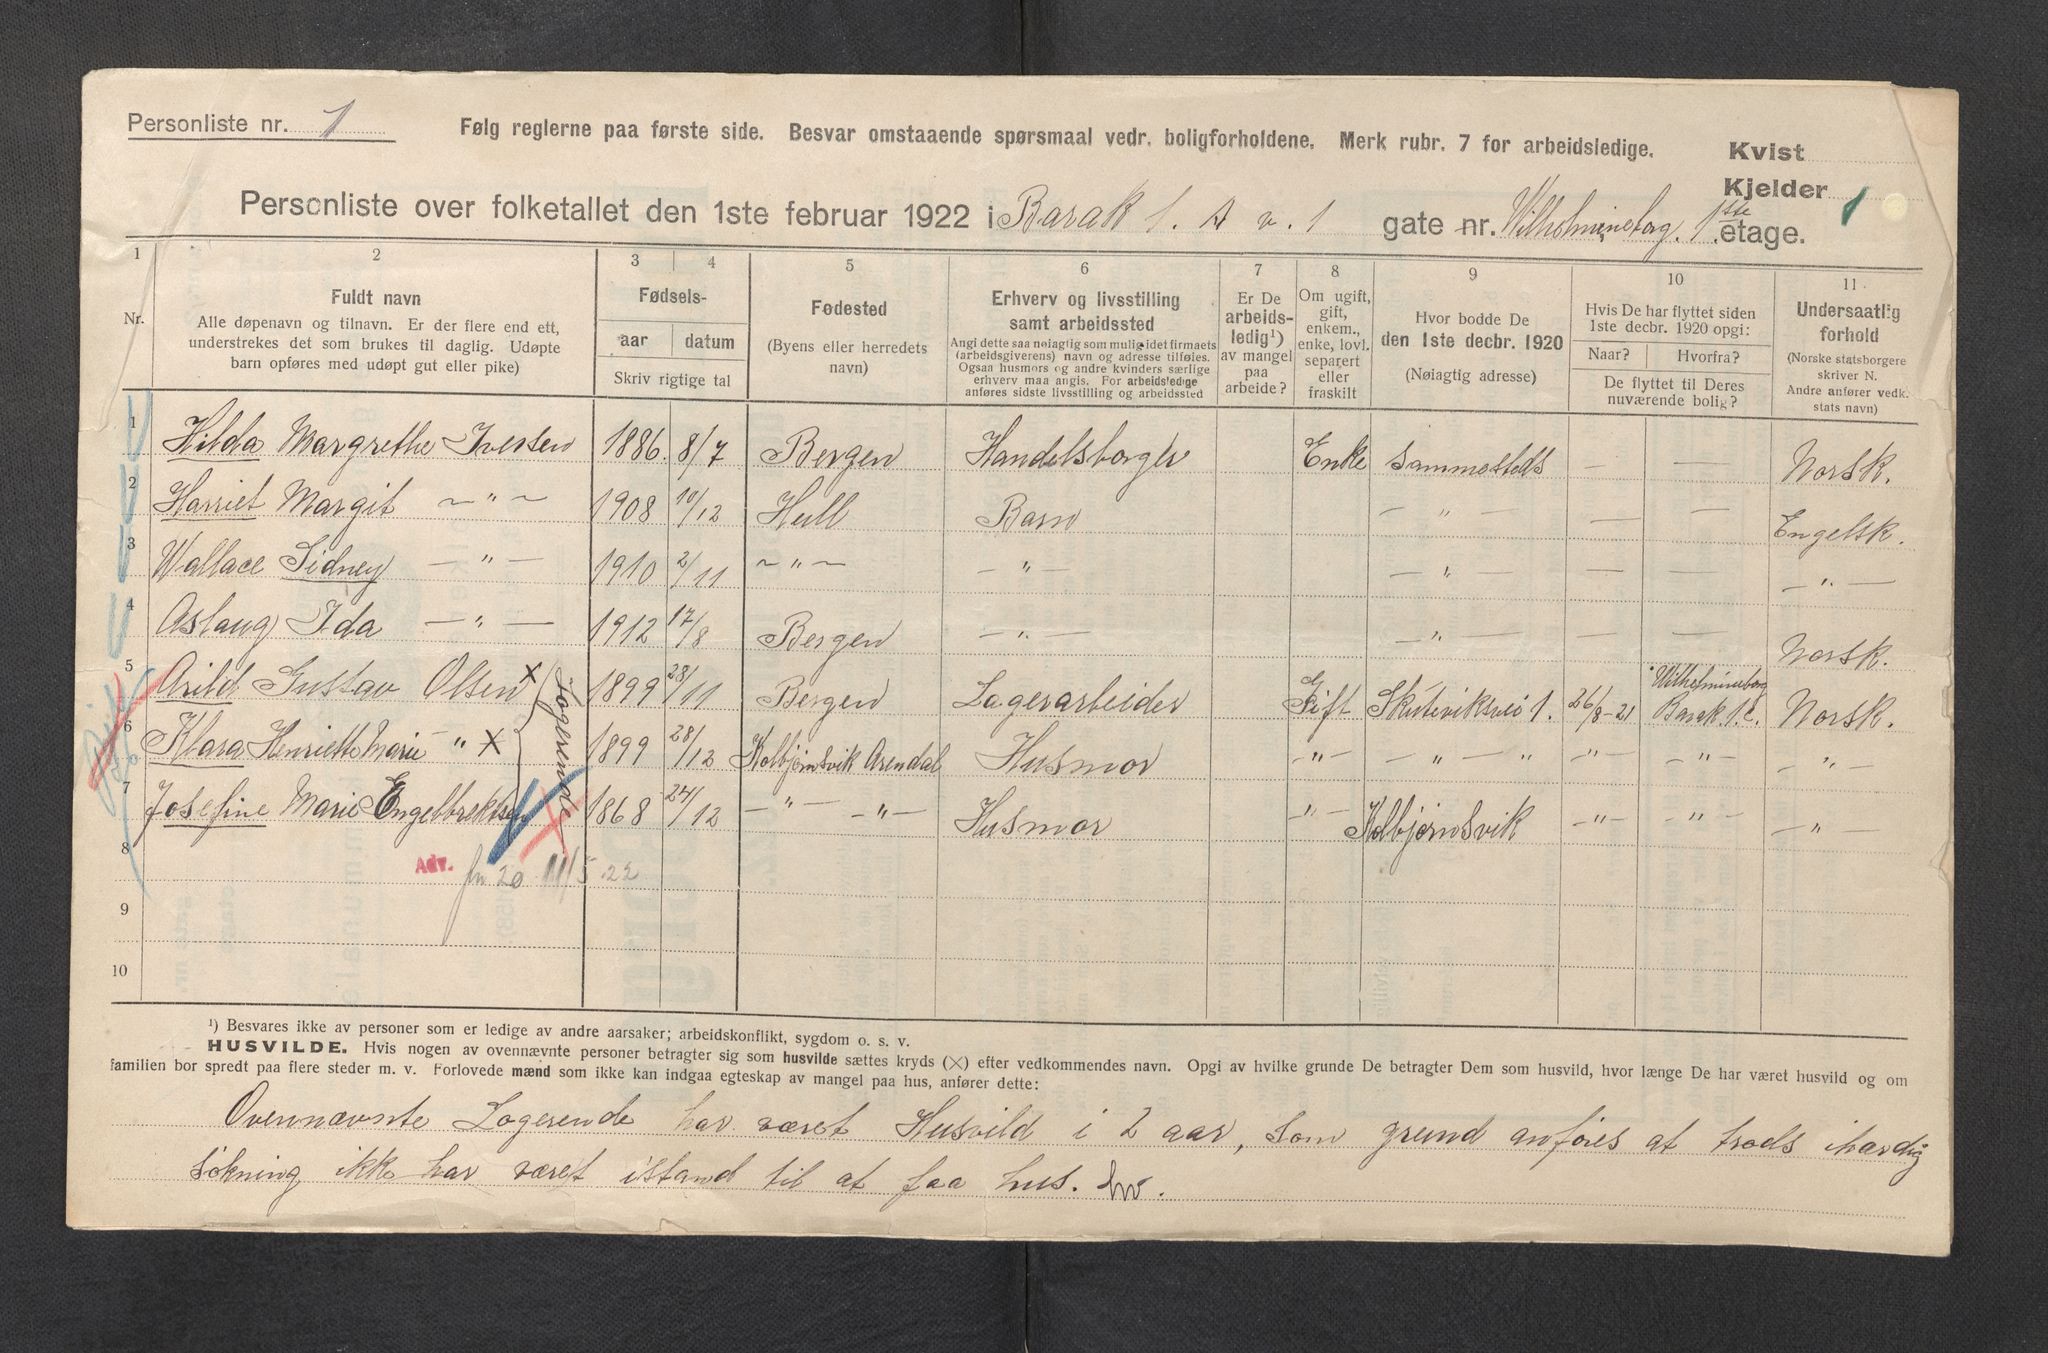 Personliste nr. 1
Følg reglerne paa første side. Besvar omstaaende spørsmaal vedr. boligforholdene. Merk rubr. 7 for arbeidsledige.
Kvist
Kjelder 1
Personliste over folketallet den 1ste februar 1922 i Barak 1. A v. 1 gate nr. Wilhelmineborg. 1ste etage.
1 2 3 4 5 6 7 8 9 10 11
Nr.
Fuldt navn
Alle døpenavn og tilnavn. Er der flere end ett,
understrekes det som brukes til daglig. Udøpte
barn opføres med udøpt gut eller pike)
Fødsels-
aar datum
Skriv rigtige tal
Fødested
(Byens eller herredets
navn)
Erhverv og livsstilling
samt arbeidssted
Angi dette saa nøiagtig som mulig idet firmaets
(arbeidsgiverens) navn og adresse tilføies.
Ogsaa husmors og andre kvinders særlige
erhverv maa angis. For arbeidsledige
anføres sidste livsstilling og arbeidssted
Er De
arbeids-
ledig¹)
av mangel
paa
arbeide?
Om ugift,
gift,
enkem.,
enke, lovl.
separert
eller
fraskilt
Hvor bodde De
den 1ste decbr. 1920
(Nøiagtig adresse)
Hvis De har flyttet siden
1ste decbr. 1920 opgi:
Naar? Hvorfra?
De flyttet til Deres
nuværende bolig?
Undersaatlig
forhold
(Norske statsborgere
skriver N.
Andre anfører vedk.
stats navn)
1 Hilda Margrethe Iversen 1886. 8/7 Bergen Handelsborger Enke Sammesteds — — Norsk.
2 Harriet Margit ~ " ~ 1908 10/12 Hull Barn — " — — — Engelsk.
3 Wallace Sidney — " — 1910 2/11 ~ " ~ — " — — " — — — — " —
4 Aslaug Ida — " — 1912 17/8 Bergen — " — — " — — — Norsk.
5 Arild Gustav Olsen X 1899 28/11 Bergen Lagerarbeider Gift Skuteviksvei 1. 26/8-21 Wilhelmineborg Barak 1. C. Norsk.
6 Klara Henriette Marie " X 1899 28/12 Kolbjørnsvik Arendal Husmor — " — — " — " — " — — " — — " —
7 Josefine Marie Engelbrektsen 1868 24/12 — " — — " — Husmor — " — Kolbjørnsvik — " — — " — — " —
Logerende
8
Adv. 20 11/5 22
9
10
¹) Besvares ikke av personer som er ledige av andre aarsaker; arbeidskonflikt, sygdom o. s. v.
HUSVILDE. Hvis nogen av ovennævnte personer betragter sig som husvilde sættes kryds (X) efter vedkommendes navn. Opgi av hvilke grunde De betragter Dem som husvild, hvor længe De har været husvild og om
familien bor spredt paa flere steder m. v. Forlovede mænd som ikke kan indgaa egteskap av mangel paa hus, anfører dette:
Ovennævnte Logerende har været Husvild i 2 aar, som grund anføres at trods ihærdig
søkning ikke har været istand til at faa hus.